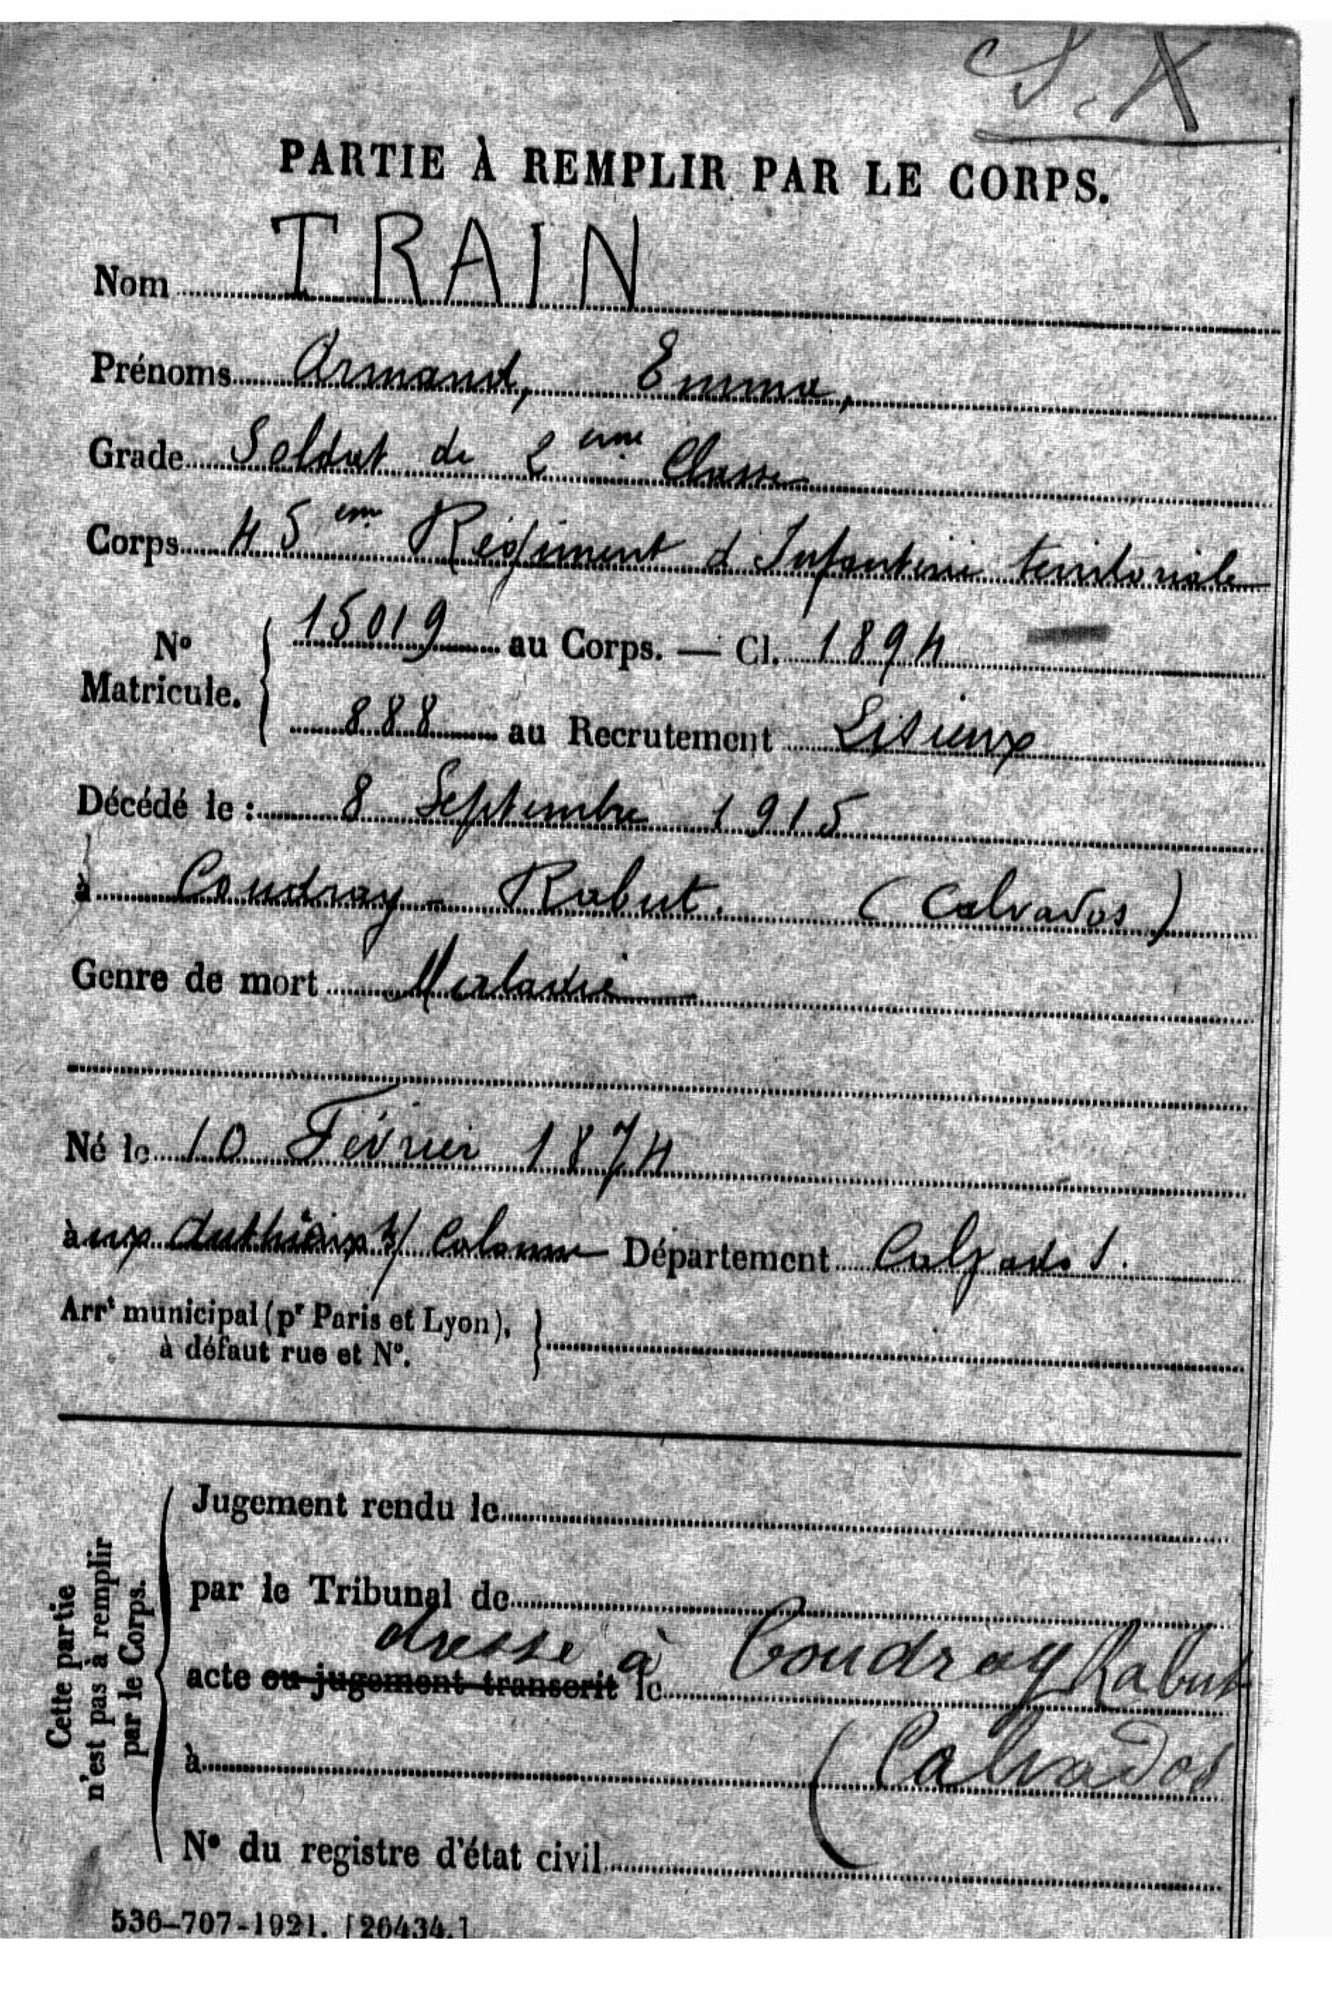 S. X
PARTIE À REMPLIR PAR LE CORPS.
Nom TRAIN
Prénoms Armand, Emma,
Grade Soldat de 2 eme Classe
Corps 45 em Régiment d'Infanterie territoriale
Nº Matricule. 15019 au Corps. — Cl. 1894
888 au Recrutement Lisieux
Décédé le : 8 Septembre 1915
à Coudray - Rabut. (Calvados)
Genre de mort Maladie
Né le 10 Février 1874
à ux Authieux s/ Calonne Département Calvados.
Arrt municipal (pr Paris et Lyon),
à défaut rue et Nº.
Cette partie
n'est pas à remplir
par le Corps.
Jugement rendu le
par le Tribunal de
dresse à Coudray Rabut
acte ou jugement transcrit le
à (Calvados
Nº du registre d'état civil
536-707-1921. [26434.]